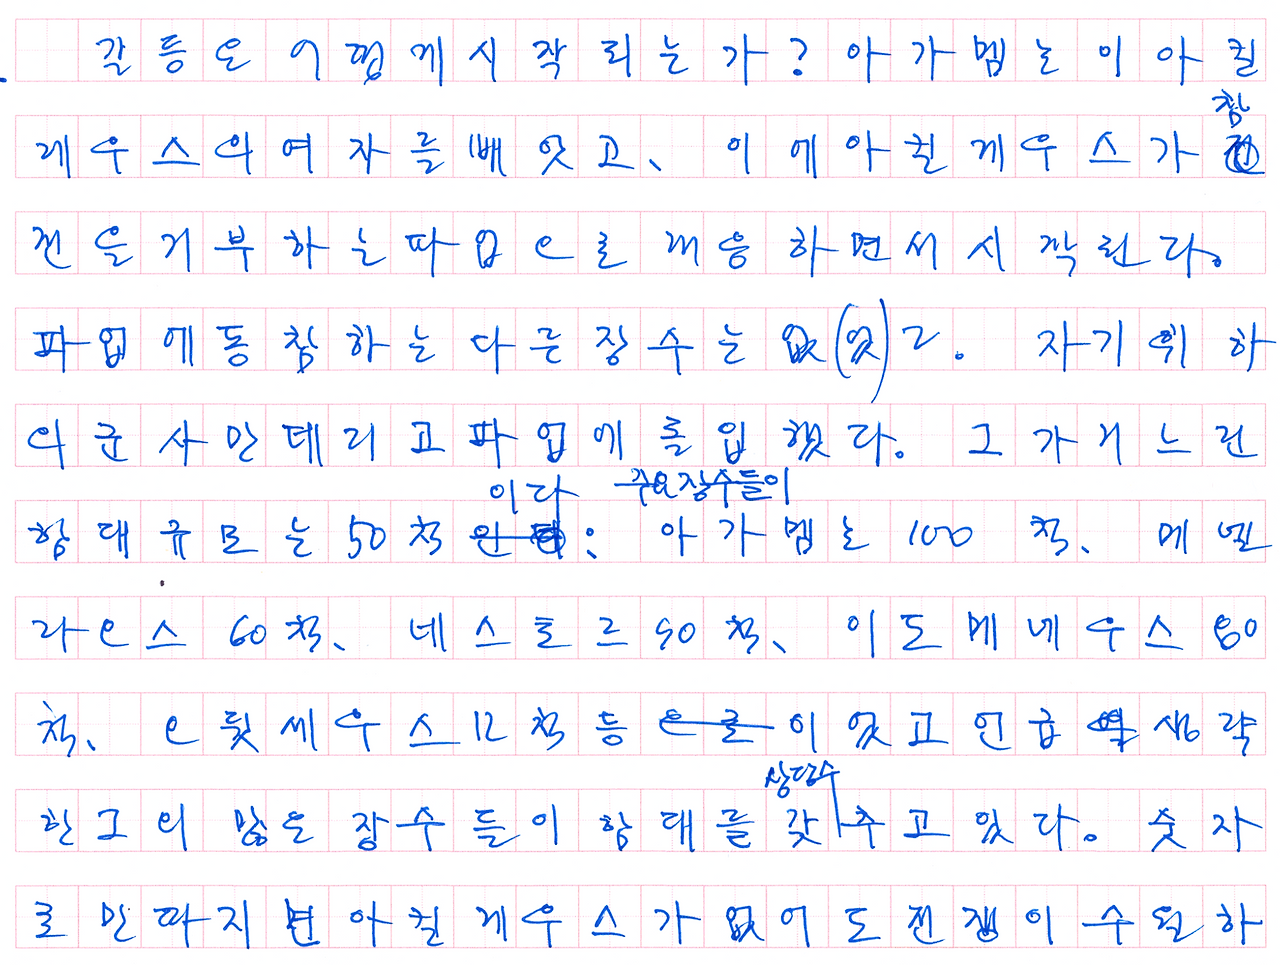 갈등은 어떻게 시작되는가? 아가멤논이 아킬
레우스의 여자를 빼앗고, 이에 아킬레우스가 참
전을 거부하는 파업으로 대응하면서 시작된다.
파업에 동참하는 다른 장수는 없(었)고. 자기 휘하
의 군사만 데리고 파업에 돌입했다. 그가 거느린
이다 주요 장수들이
함대 규모는 50척 : 아가멤논 100척, 메넬
라오스 60척, 네스토르 90척, 이도메네우스 80
척, 오뒷세우스 12척 등이 있고 언급 생략
한 그외 많은 장수들이 함대를 갖추고 있다. 숫자
상당수
로만 따지면 아킬레우스가 없어도 전쟁이 수월하